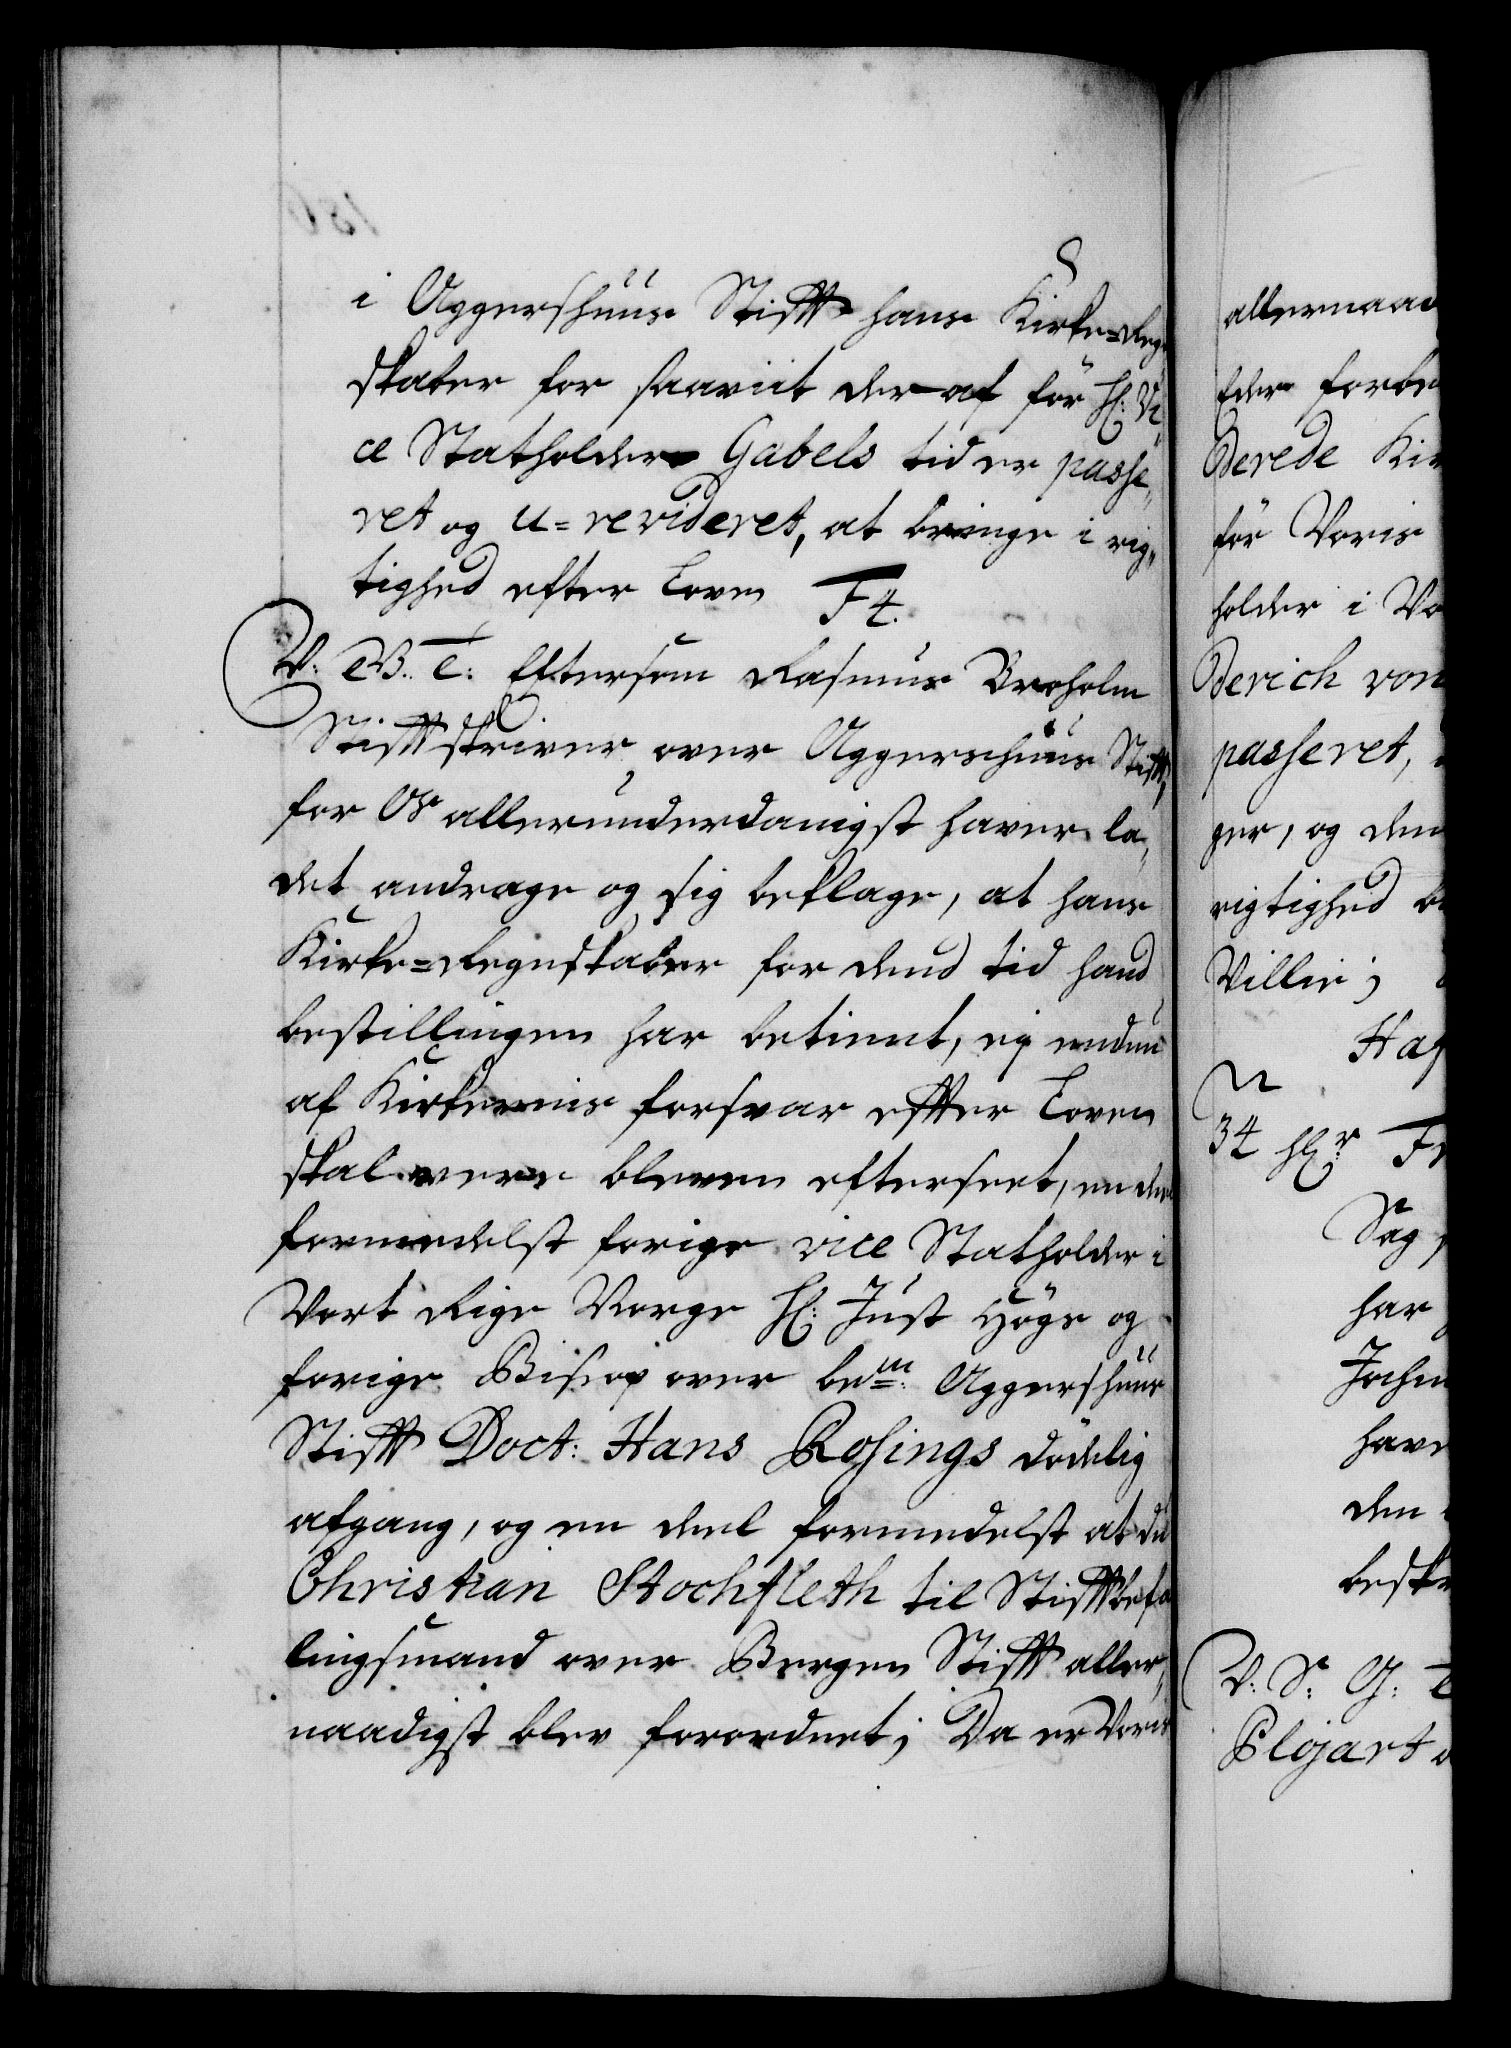 i Aggershuus Stifft hans Kirke-Reg-
skaber for saaviit der af för Hl: Vi-
ce Statholder Gabels tid er passe,,
ret og u-revideret, at bringe i rig,,
tighed efter Loven F4.
V. G. T: Eftersom Rasmus Broholm
Stifftskriver over Aggerschuus Stifft,
for Os allerunderdanigst haver la,,
det andrage og sig beklage, at hans
Kirke-Regnskaber for dend tid hand
bestillingen har betient, ej endnu
af Kirkernis forsvar effter Loven
skal vere bleven efterseet, en deel
formedelst forige vice Statholder i
Vort Rige Norge Hl: Just Høgs og
forige Biscop over bem: Aggershuus
Stifft Doct: Hans Rosings dödelig
afgang, og en deel formedelst at du
Christian Stochfleth til Stifftbefa
lingsmand over Bergen Stifft aller,,
naadigst blev forordnet; Da er Voris
allernaad
Eder forbe
Derede Kir
för Voris
holder i Vo
Derich von
passeret,
ger, og dem
rigtighed b
Villie;
Haf
34 Hr. Fr
Sag
har
Jochu
have
den
beskr
V: S: G: T
Plojart